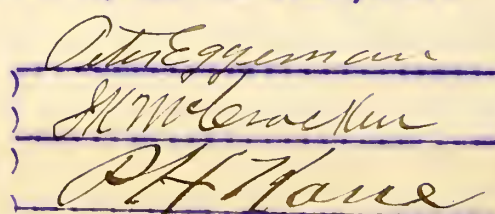 Peter Eggeman
JK McCracken
P H Kane